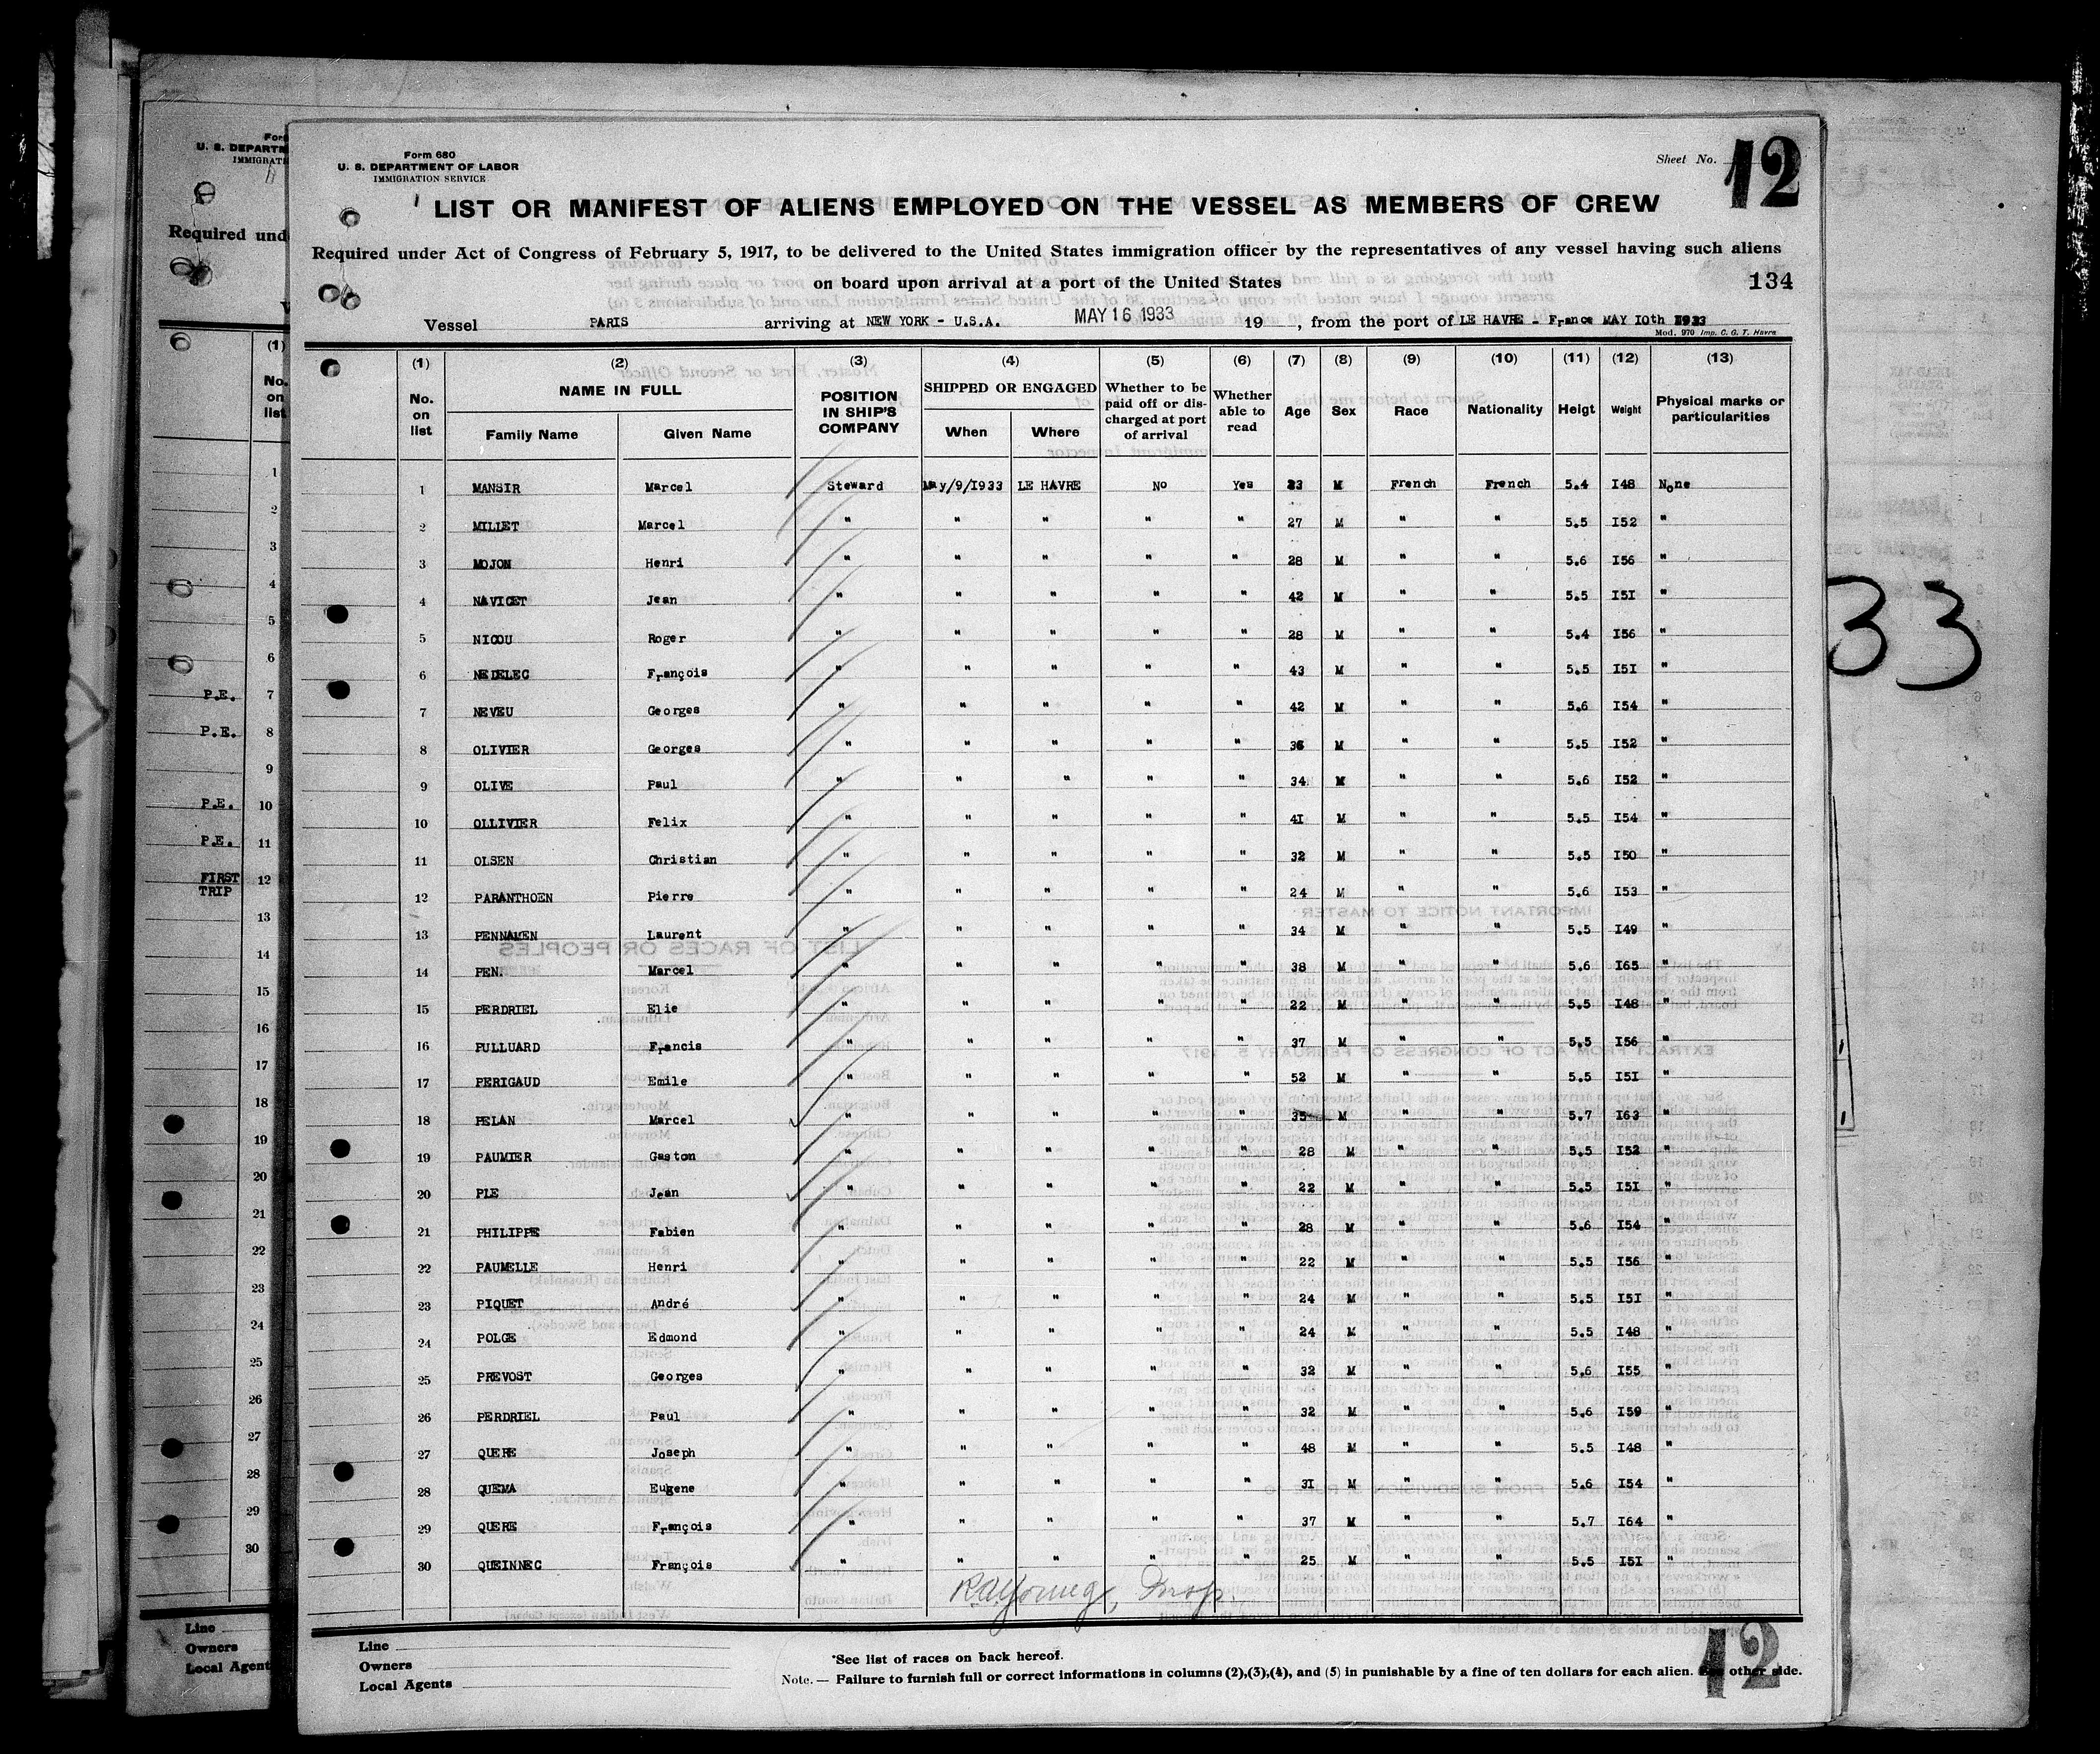 Form 680
U. S. DEPARTMENT OF LABOR
IMMIGRATION SERVICE
Sheet No. 12
LIST OR MANIFEST OF ALIENS EMPLOYED ON THE VESSEL AS MEMBERS OF CREW
Required under Act of Congress of February 5, 1917, to be delivered to the United States immigration officer by the representatives of any vessel having such aliens
on board upon arrival at a port of the United States
134
Vessel PARIS arriving at NEW YORK - U.S.A. MAY 16 1933 19 , from the port of LE HAVRE - France MAY 10th 1933
Mod. 970 Imp. C. G. T. Havre
(1) (2) (3) (4) (5) (6) (7) (8) (9) (10) (11) (12) (13)
No. on list NAME IN FULL Family Name Given Name POSITION IN SHIP'S COMPANY SHIPPED OR ENGAGED When Where Whether to be paid off or discharged at port of arrival Whether able to read Age Sex Race Nationality Heigt Weight Physical marks or particularities
1 MANSIR Marcel Steward May/9/1933 LE HAVRE No Yes 23 M French French 5.4 148 None
2 MILLET Marcel " " " " " 27 M " " 5.5 152 "
3 MOJON Henri " " " " " 28 M " " 5.6 156 "
4 NAVICET Jean " " " " " 42 M " " 5.5 151 "
5 NICOU Roger " " " " " 28 M " " 5.4 156 "
6 NEDELEC François " " " " " 43 M " " 5.5 151 "
7 NEVEU Georges " " " " " 42 M " " 5.6 154 "
8 OLIVIER Georges " " " " " 36 M " " 5.5 152 "
9 OLIVE Paul " " " " " 34 M " " 5.6 152 "
10 OLLIVIER Felix " " " " " 41 M " " 5.5 154 "
11 OLSEN Christian " " " " " 32 M " " 5.5 150 "
12 PARANTHOEN Pierre " " " " " 24 M " " 5.6 153 "
13 PENNAMEN Laurent " " " " " 34 M " " 5.5 149 "
14 PEN. Marcel " " " " " 38 M " " 5.6 165 "
15 PERDRIEL Elie " " " " " 22 M " " 5.5 148 "
16 PULLUARD Francis " " " " " 37 M " " 5.5 156 "
17 PERIGAUD Emile " " " " " 52 M " " 5.5 151 "
18 PELAN Marcel " " " " " 35 M " " 5.7 163 "
19 PAUMIER Gaston " " " " " 28 M " " 5.5 152 "
20 PLE Jean " " " " " 22 M " " 5.5 151 "
21 PHILIPPE Fabien " " " " " 28 M " " 5.6 154 "
22 PAUMELLE Henri " " " " " 22 M " " 5.5 156 "
23 PIQUET André " " " " " 24 M " " 5.5 151 "
24 POLGE Edmond " " " " " 24 M " " 5.5 148 "
25 PREVOST Georges " " " " " 32 M " " 5.6 155 "
26 PERDRIEL Paul " " " " " 32 M " " 5.6 159 "
27 QUERE Joseph " " " " " 48 M " " 5.5 148 "
28 QUEMA Eugene " " " " " 31 M " " 5.6 154 "
29 QUERE François " " " " " 37 M " " 5.7 164 "
30 QUEINNEC François " " " " " 25 M " " 5.5 151 "
Line
Owners
Local Agents
*See list of races on back hereof.
Note. — Failure to furnish full or correct informations in columns (2),(3),(4), and (5) in punishable by a fine of ten dollars for each alien. See other side.
12
33
P.E. 7
P.E. 8
P.E. 10
P.E. 11
FIRST TRIP 12
Line
Owners
Local Agent